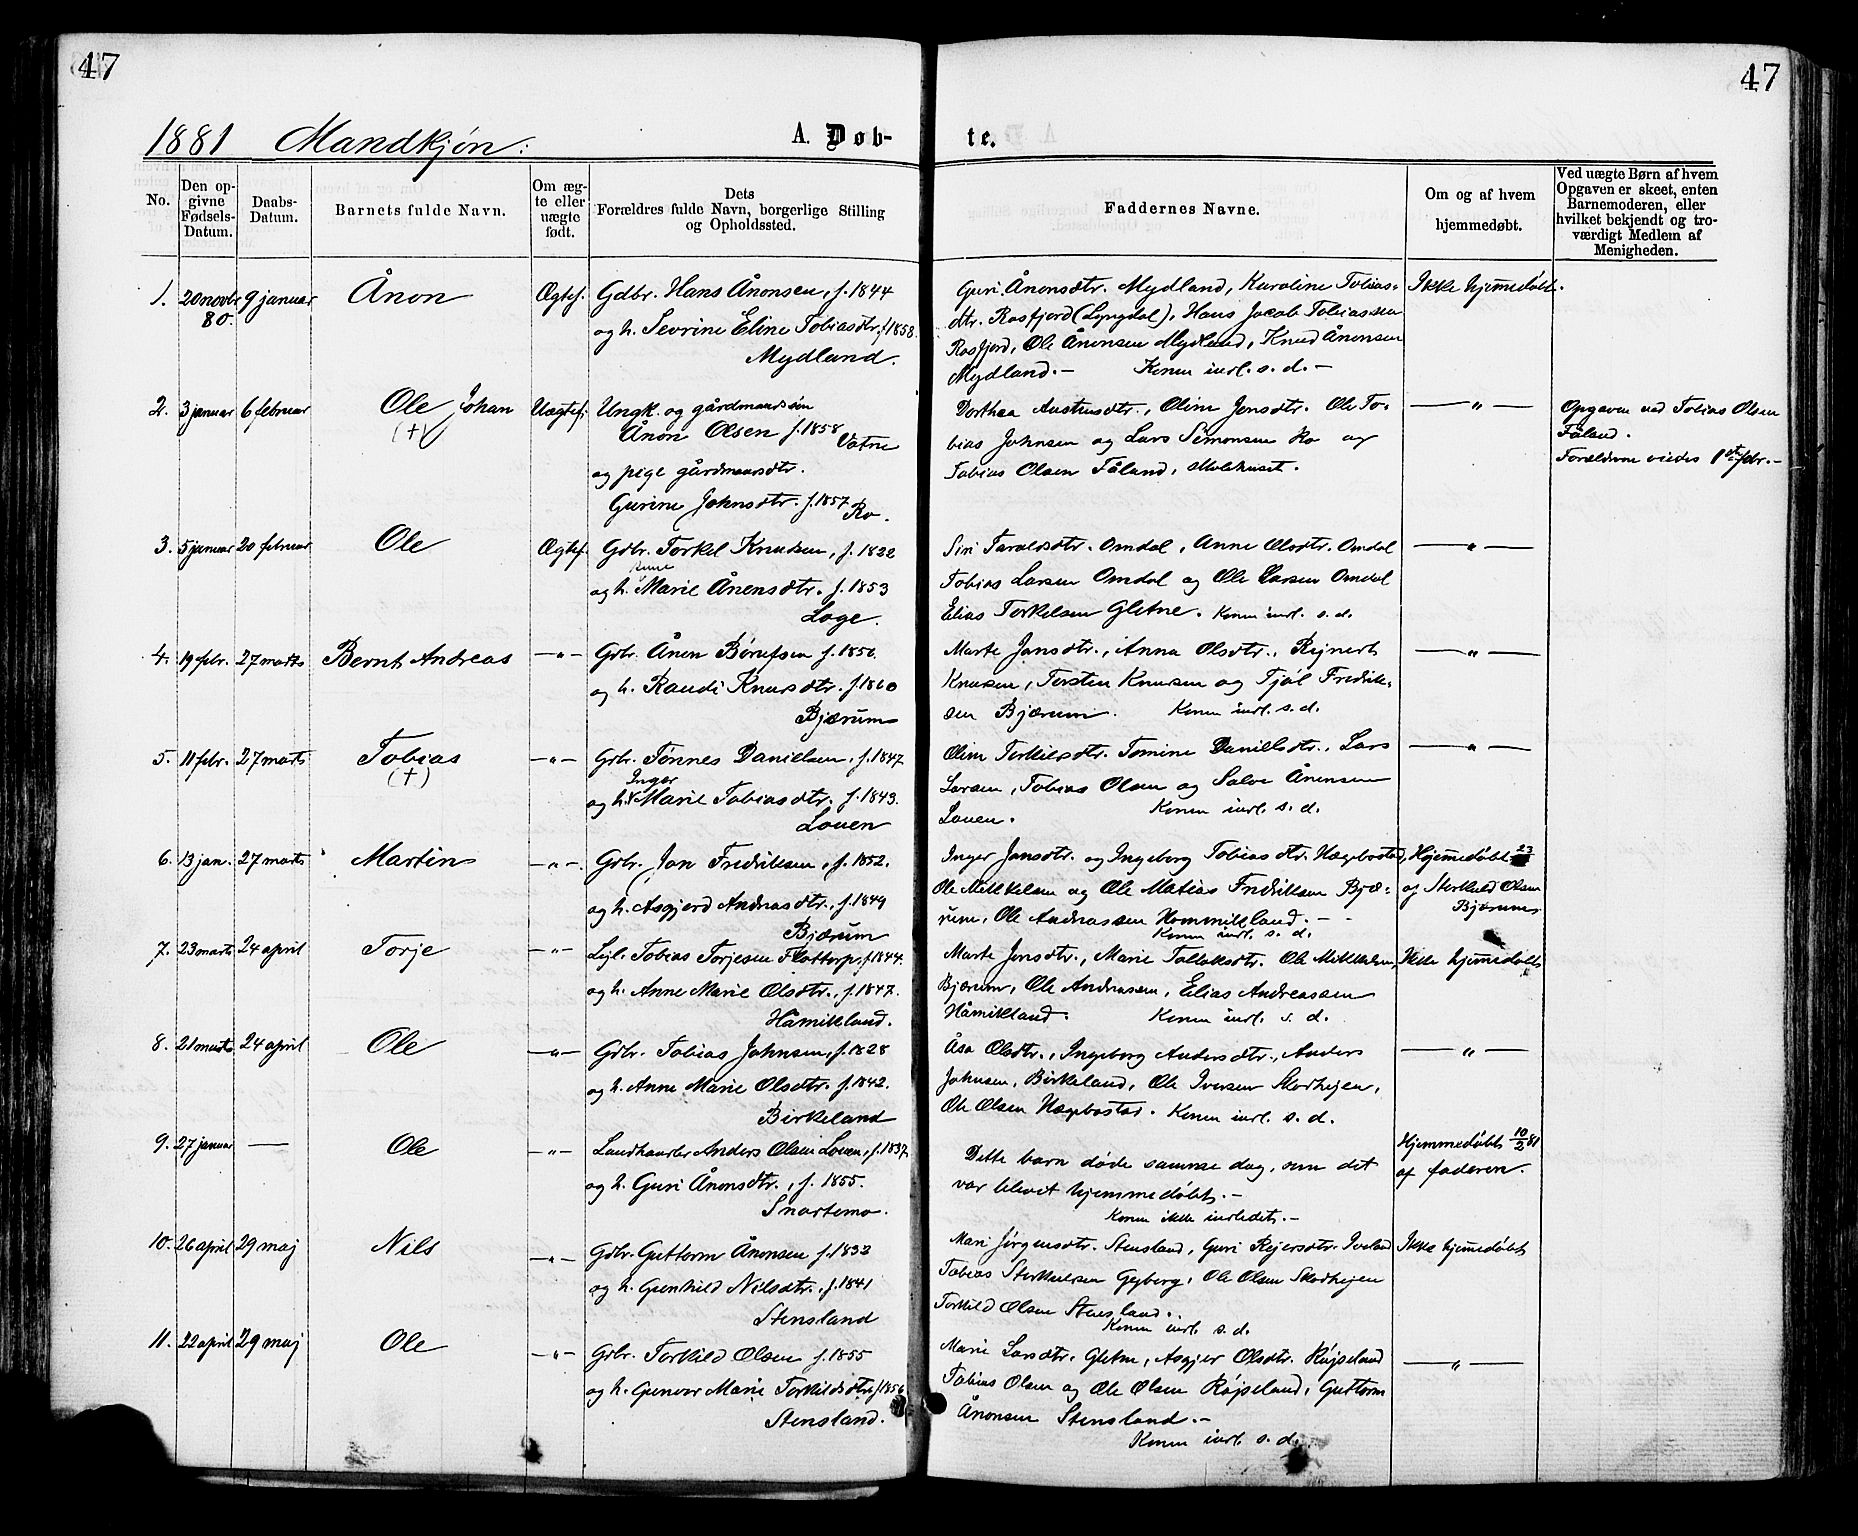 47
47
1881 Mandkjøn:
A. Døb-
te.
No.
Den op-
givne
Fødsels-
Datum.
Daabs-
Datum.
Barnets fulde Navn.
Om æg-
te eller
uægte
født.
Dets
Forældres fulde Navn, borgerlige Stilling
og Opholdssted.
Faddernes Navne.
Om og af hvem
hjemmedøbt.
Ved uægte Børn af hvem
Opgaven er skeet, enten
Barnemoderen, eller
hvilket bekjendt og tro-
værdigt Medlem af
Menigheden.
1. 20 novbr 80. 9 januar Ånon Ægtef.
Gdbr. Hans Ånonsen, f. 1844
og h. Sevrine Eline Tobiasdtr. f 1858.
Mydland.
Guri Ånonsdtr. Mydland, Karoline Tobias-
dtr. Rosfjord (Lyngdal), Hans Jacob Tobiassen
Rosfjord, Ole Ånonsen Mydland, Knud Ånonsen
Mydland.— Konen indl. s. d.—
Ikke hjemmedøbt.
2. 3 januar 6 februar Ole Johan Uægtef.
(+)
Ungk. og gårdmandssøn
Ånon Olsen f. 1858
Vatne
og pige gårdmansdtr.
Gurine Johnsdtr. f. 1857
Ro.
Dorthea Austensdtr., Oline Jensdtr. Ole To-
bias Johnsen og Lars Simonsen Ro og
Tobias Olsen Fåland,
— " —
Opgaven ved Tobias Olsen
Fåland.
Forældrene viedes 1ste febr.—
3. 5 januar 20 februar Ole Ægtef.
Gdbr. Torkel Knudsen, f. 1822
og h. Marie Ånensdtr. f. 1853
Loge.
Siri Taraldsdtr. Omdal, Anne Olsdtr. Omdal
Tobias Larsen Omdal og Ole Larsen Omdal
Elias Torkelsen Gletne. Konen indl. s. d.
— " —
4. 19 febr. 27 marts Bernt Andreas — " —
Grbr. Ånen Børufsen f. 1850.
og h. Randi Knudsdtr. f. 1860
Bjærum
Marte Jansdtr., Anna Olsdtr., Rejnert
Knudsen, Torsten Knudsen og Tjøl Fredrik-
sen Bjærum. Konen indl. s. d.
— " —
5. 11 febr. 27 marts Tobias — " —
(+)
Grbr. Tønnes Danielsen, f. 1847
Inger
og h. Marie Tobiasdtr. f. 1843.
Louen
Oline Torkildsdtr. Tomine Danielsdtr., Lars
Larsen, Tobias Olsen og Salve Ånensen
Louen. Konen indl. s. d.
— " —
6. 13 jan. 27 marts Martin — " —
Grbr. Jan Fredriksen, f. 1852.
og h. Asgjerd Andreasdtr., f. 1849
Bjærum
Inger Jansdtr. og Ingeborg Tobiasdtr. Hægebostad,
Ole Mikkelsen og Ole Matias Fredriksen Bjæ-
rum, Ole Andreassen Hommikland.—
Konen indl. s. d.
Hjemmedøbt 23
af Storkild Olsen
Bjærum
7. 23 marts 24 april Torje — " —
Lejl. Tobias Torjesen Flottorp, f. 1844.
og h. Anne Marie Olsdtr., f. 1847.
Håmikland.
Marte Jonsdtr., Marie Tollaksdtr. Ole Mikkelsen,
Bjærum, Ole Andreassen, Elias Andreassen
Håmikland. Konen indl. s. d.
Ikke hjemmedøbt
8. 21 marts 24 april Ole — " —
Gdbr. Tobias Johnsen, f. 1828
og h. Anne Marie Olsdtr. f. 1842.
Birkeland
Åsa Olsdtr., Ingeborg Andersdtr., Anders
Johnsen, Birkeland, Ole Iversen Skodhejen,
Ole Olsen Hægebostad. Konen indl. s. d.
— " —
9. 27 januar — Ole — " —
Landhandler Anders Olsen Louen, f. 1837
og h. Guri Ånonsdtr., f. 1855.
Snartemo.
Dette barn døde samme dag, som det
var blevet hjemmedøbt.—
Konen ikke indledet.—
Hjemmedøbt 10/2 81
af faderen.
10. 26 april 29 maj Nils — " —
Gdbr. Guttorm Ånonsen f. 1832
og h. Gunhild Nilsdtr., f. 1841
Stensland
Mari Jørgensdtr. Stensland, Guri Rejersdtr. Iveland
Tobias Storkildsen Gyberg, Ole Olsen Skodhejen
Torkild Olsen Stensland.
Konen indl. s. d.
Ikke hjemmedøbt
11. 22 april 29 maj Ole — " —
Grbr. Torkild Olsen f. 1855
og h. Gunvor Marie Torkildsdtr. f 1856
Stensland.
Marie Larsdtr. Gletne, Asgjer Olsdtr. Røjseland
Tobias Olsen og Ole Olsen Røjseland, Guttorm
Ånonsen Stensland.—
Konen indl. s. d.
— " —